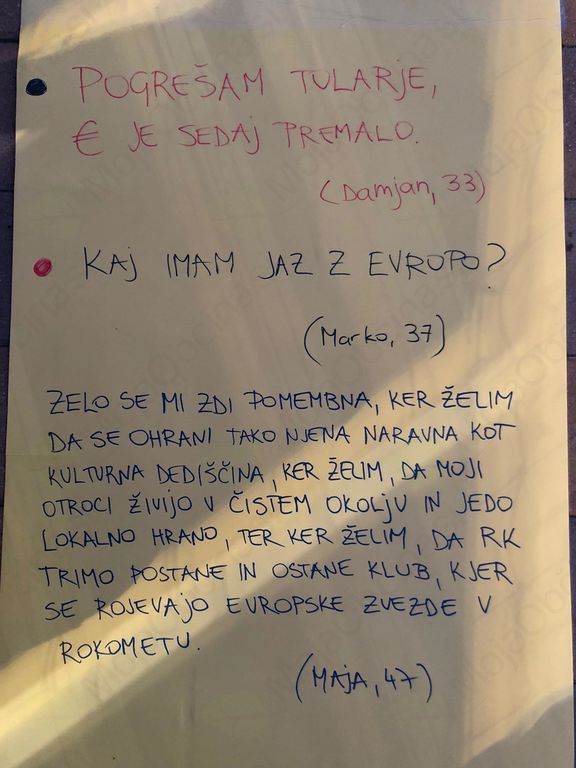 POGREŠAM TULARJE,
€ JE SEDAJ PREMALO.
(Damjan, 33)
KAJ IMAM JAZ Z EVROPO?
(Marko, 37)
ZELO SE MI ZDI POMEMBNA, KER ŽELIM
DA SE OHRANI TAKO NJENA NARAVNA KOT
KULTURNA DEDIŠČINA, KER ŽELIM, DA MOJI
OTROCI ŽIVIJO V ČISTEM OKOLJU IN JEDO
LOKALNO HRANO, TER KER ŽELIM, DA RK
TRIMO POSTANE IN OSTANE KLUB, KJER
SE ROJEVAJO EVROPSKE ZVEZDE V
ROKOMETU.
(MAJA, 47)